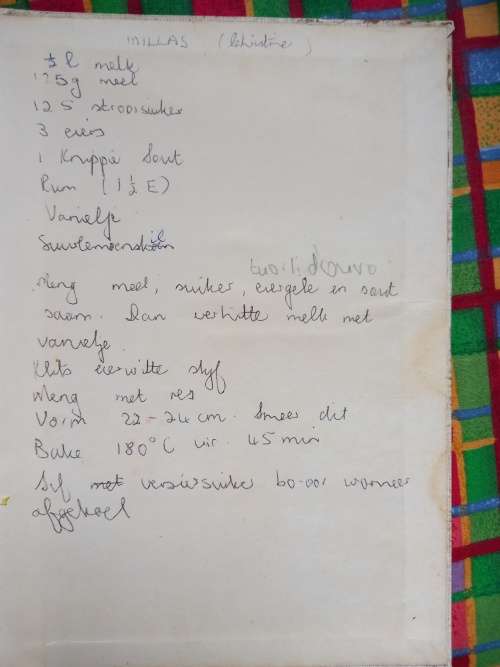 MILLAS (Christine)
½ l melk
125g meel
125 strooisuiker
3 eiers
1 Knippie Sout
Rum (1½ E)
Vanielje
Suurlemoenskil
Meng meel, suiker, eiergele en sout
saam. Dan verhitte melk met
vanielje
Klits eierwitte styf
Meng met res
Vorm 22-24 cm. Smeer dit
Bake 180°C vir 45 min
Sif versiersuiker bo-oor wanneer
afgekoel